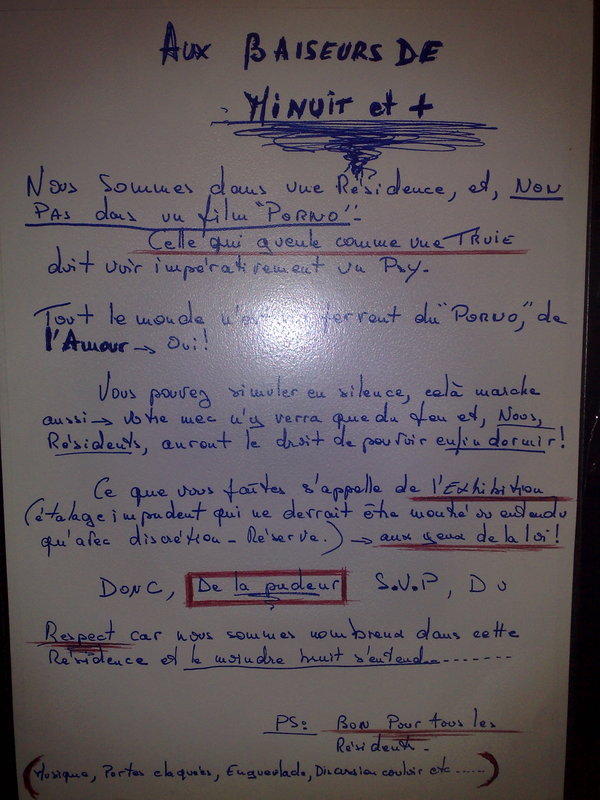 AUX BAISEURS DE
MINUIT et +
Nous Sommes dans une Résidence, et, NON
PAS dans un film "PORNO".
Celle qui gueule comme une TRUIE
doit voir impérativement un Psy.
Tout le monde n'est fervent du "PORNO," de
l'Amour → Oui!
Vous pouvez simuler en silence, celà marche
aussi → votre mec n'y verra que du feu et, Nous,
Résidents, auront le droit de pouvoir enfin dormir!
Ce que vous faîtes, s'appelle de l'Exhibition
(étalage impudent qui ne devrait être montré ou entendu
qu'avec discrétion - Réserve.) → aux yeux de la loi!
DONC, De la pudeur S.V.P, Du
Respect car nous sommes nombreux dans cette
Résidence et le moindre bruit s'entend..........
PS: BON Pour tous les
Résidents.
(Musique, Portes claquées, Engueulade, Discussion couloir etc......)